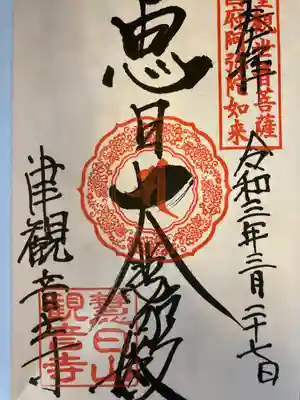 奉拝
聖観世音菩薩
国府阿弥陀如来
令和三年三月二十七日
恵日大悲殿
津観音寺
慧日山
観音寺